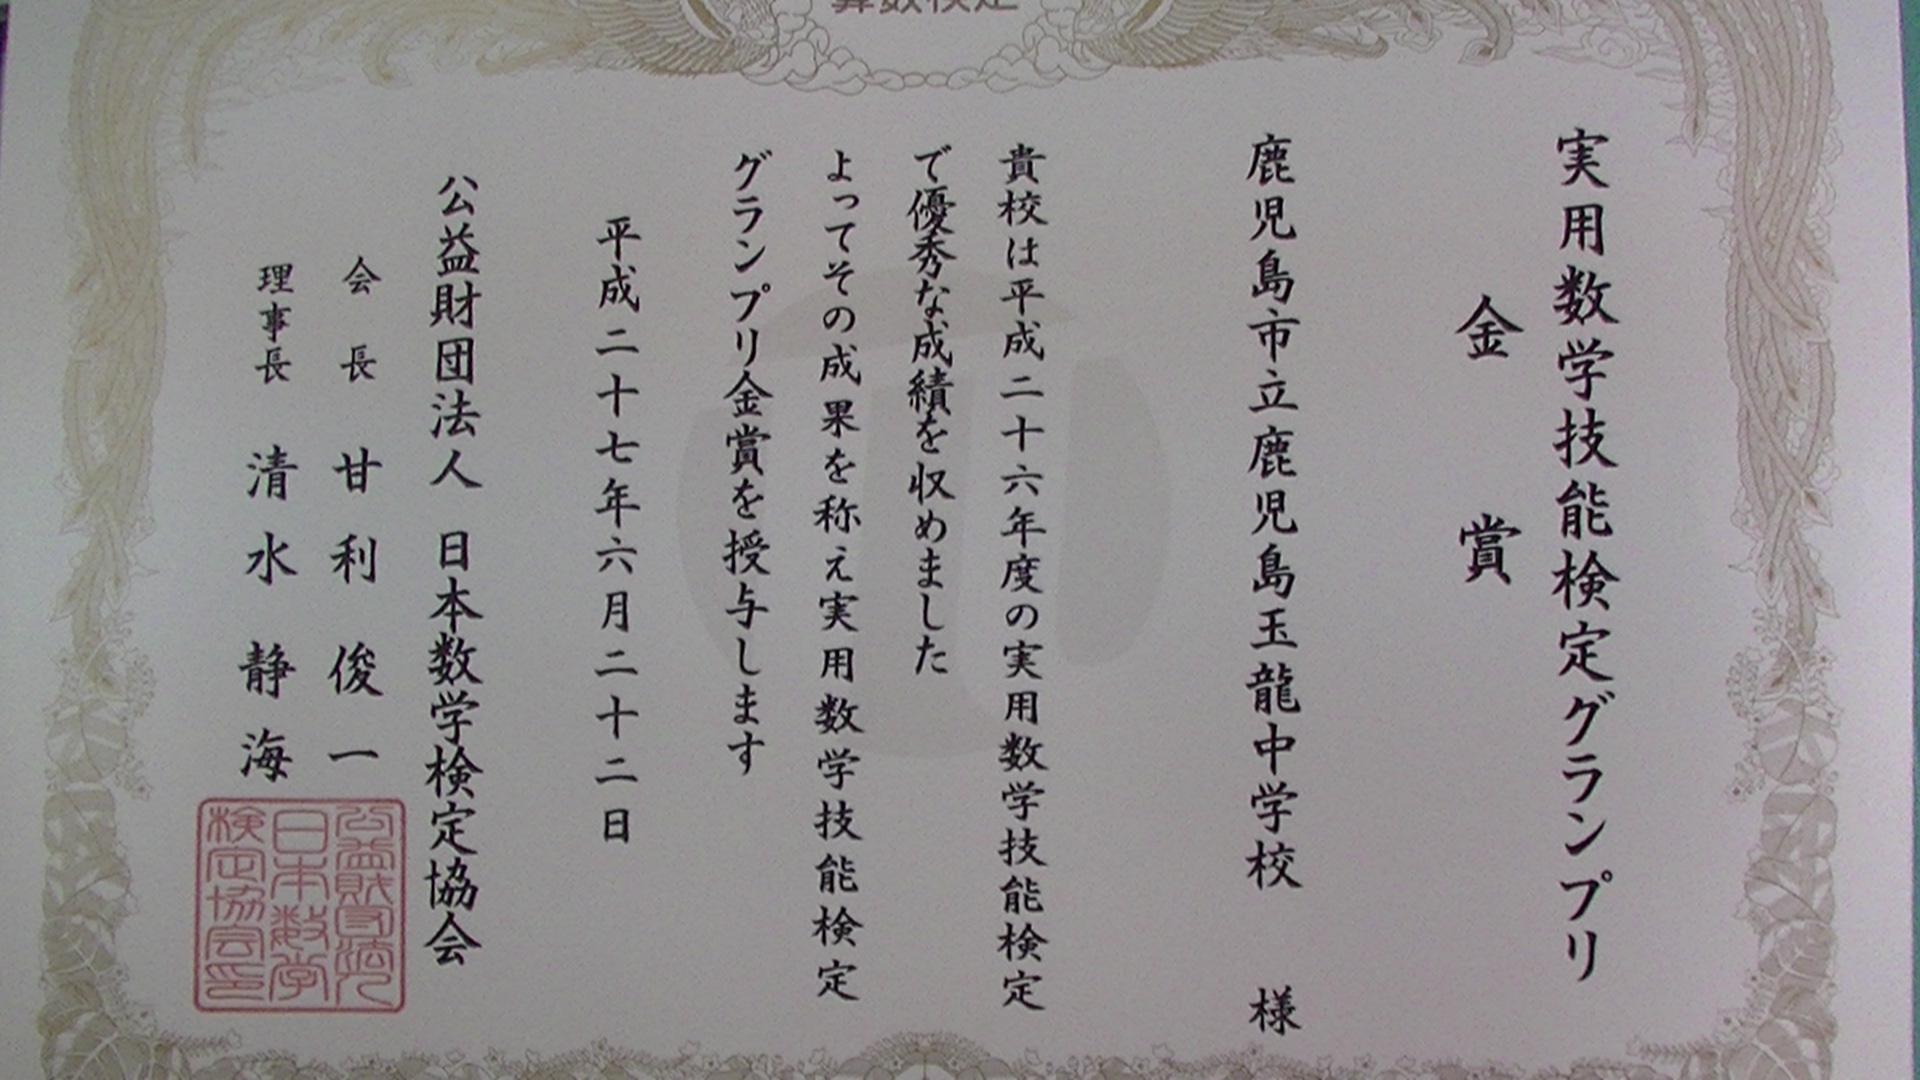 実用数学技能検定グランプリ
金賞
鹿児島市立鹿児島玉龍中学校 様
貴校は平成二十六年度の実用数学技能検定
で優秀な成績を収めました
よってその成果を称え実用数学技能検定
グランプリ金賞を授与します
平成二十七年六月二十二日
公益財団法人 日本数学検定協会
会長 甘利俊一
理事長 清水静海
公益財団法人
日本数学
検定協会印